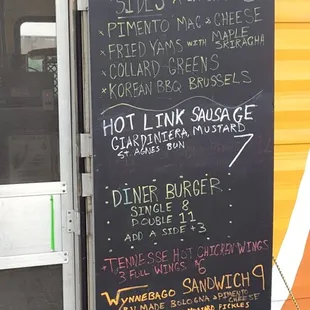 SIDES
× PIMENTO MAC & CHEESE
× FRIED YAMS WITH MAPLE SRIRACHA
× COLLARD GREENS
× KOREAN BBQ BRUSSELS
HOT LINK SAUSAGE 7
GIARDINIERA, MUSTARD
ST. AGNES BUN
DINER BURGER
SINGLE 8
DOUBLE 11
ADD A SIDE +3
TENNESSE HOT CHICKEN WINGS
3 FULL WINGS $6
WYNNEBAGO SANDWICH 9
R.V. MADE BOLOGNA & PIMENTO CHEESE
MUSTARD PICKLES